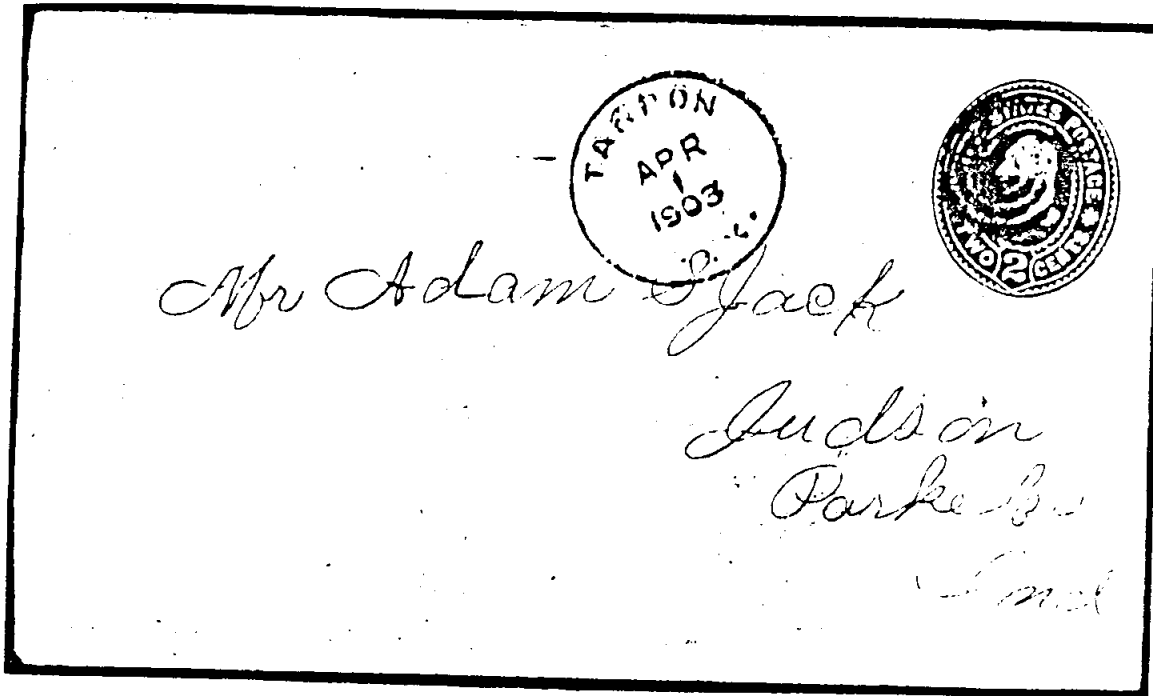 TARPON
APR
1
1903
STATES POSTAGE
TWO 2 CENTS
Mr Adam S Jack
Judson
Parke Co
Ind